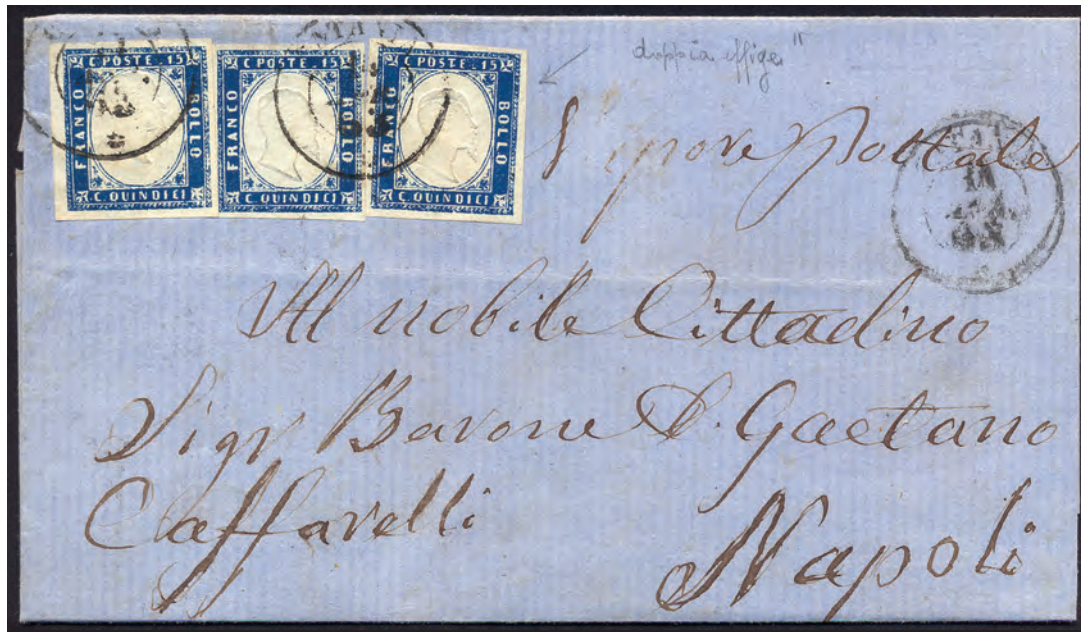 C POSTE. 15
FRANCO
BOLLO
C. QUINDICI
C POSTE. 15
FRANCO
BOLLO
C. QUINDICI
C POSTE. 15
FRANCO
BOLLO
C. QUINDICI
doppia effige"
Vapore Postale
Al nobile Cittadino
Sigr Barone D. Gaetano
Caffarelli
Napoli